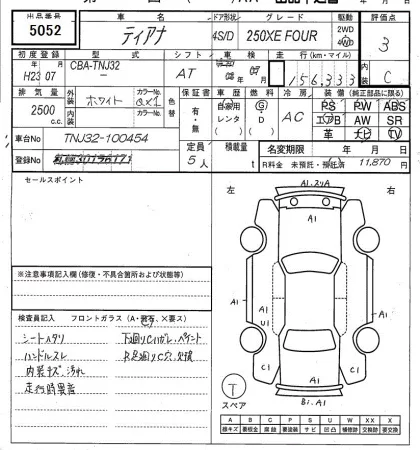 出品番号 車名 ドア形状 グレード 駆動 評価点
5052 ティアナ 4S/D 250XE FOUR 2WD 4WD 3
初度登録 型式 シフト 車検 走行(km・マイル) 内装
年 月 CBA-TNJ32 AT 年 月 156,333 C
H23 07 －
排気量 外装 ホワイト カラーNo. QX1 色替 保証書 車歴 燃料 冷房 装備(純正部品に限る)
2500 c.c. 内装 カラーNo. 有・無 自家用 レンタ G D AC PS PW ABS
エアB AW SR
革 ナビ TV
車台No TNJ32-100454 定員 積載量 名変期限 年 月 日
登録No 5人 R料金 未預託・預託済 11,870 円
セールスポイント
左 右
A1.スリA
A1
A1
A1 A1 A1
U1
C1 C1
A1
B1.A1
※注意事項記入欄(修復・不具合箇所および状態等)
検査員記入 フロントガラス(A・飛石、×要ス)
シートヘタリ 下廻りCハガレ.ペイント
ハンドルスレ
内装キズ.汚れ
走行時異音
T
スペア
A B C P S U W X XX
線キズ 要板金 腐食 要塗装 サビ 凹凸 補修跡 要交換 交換済